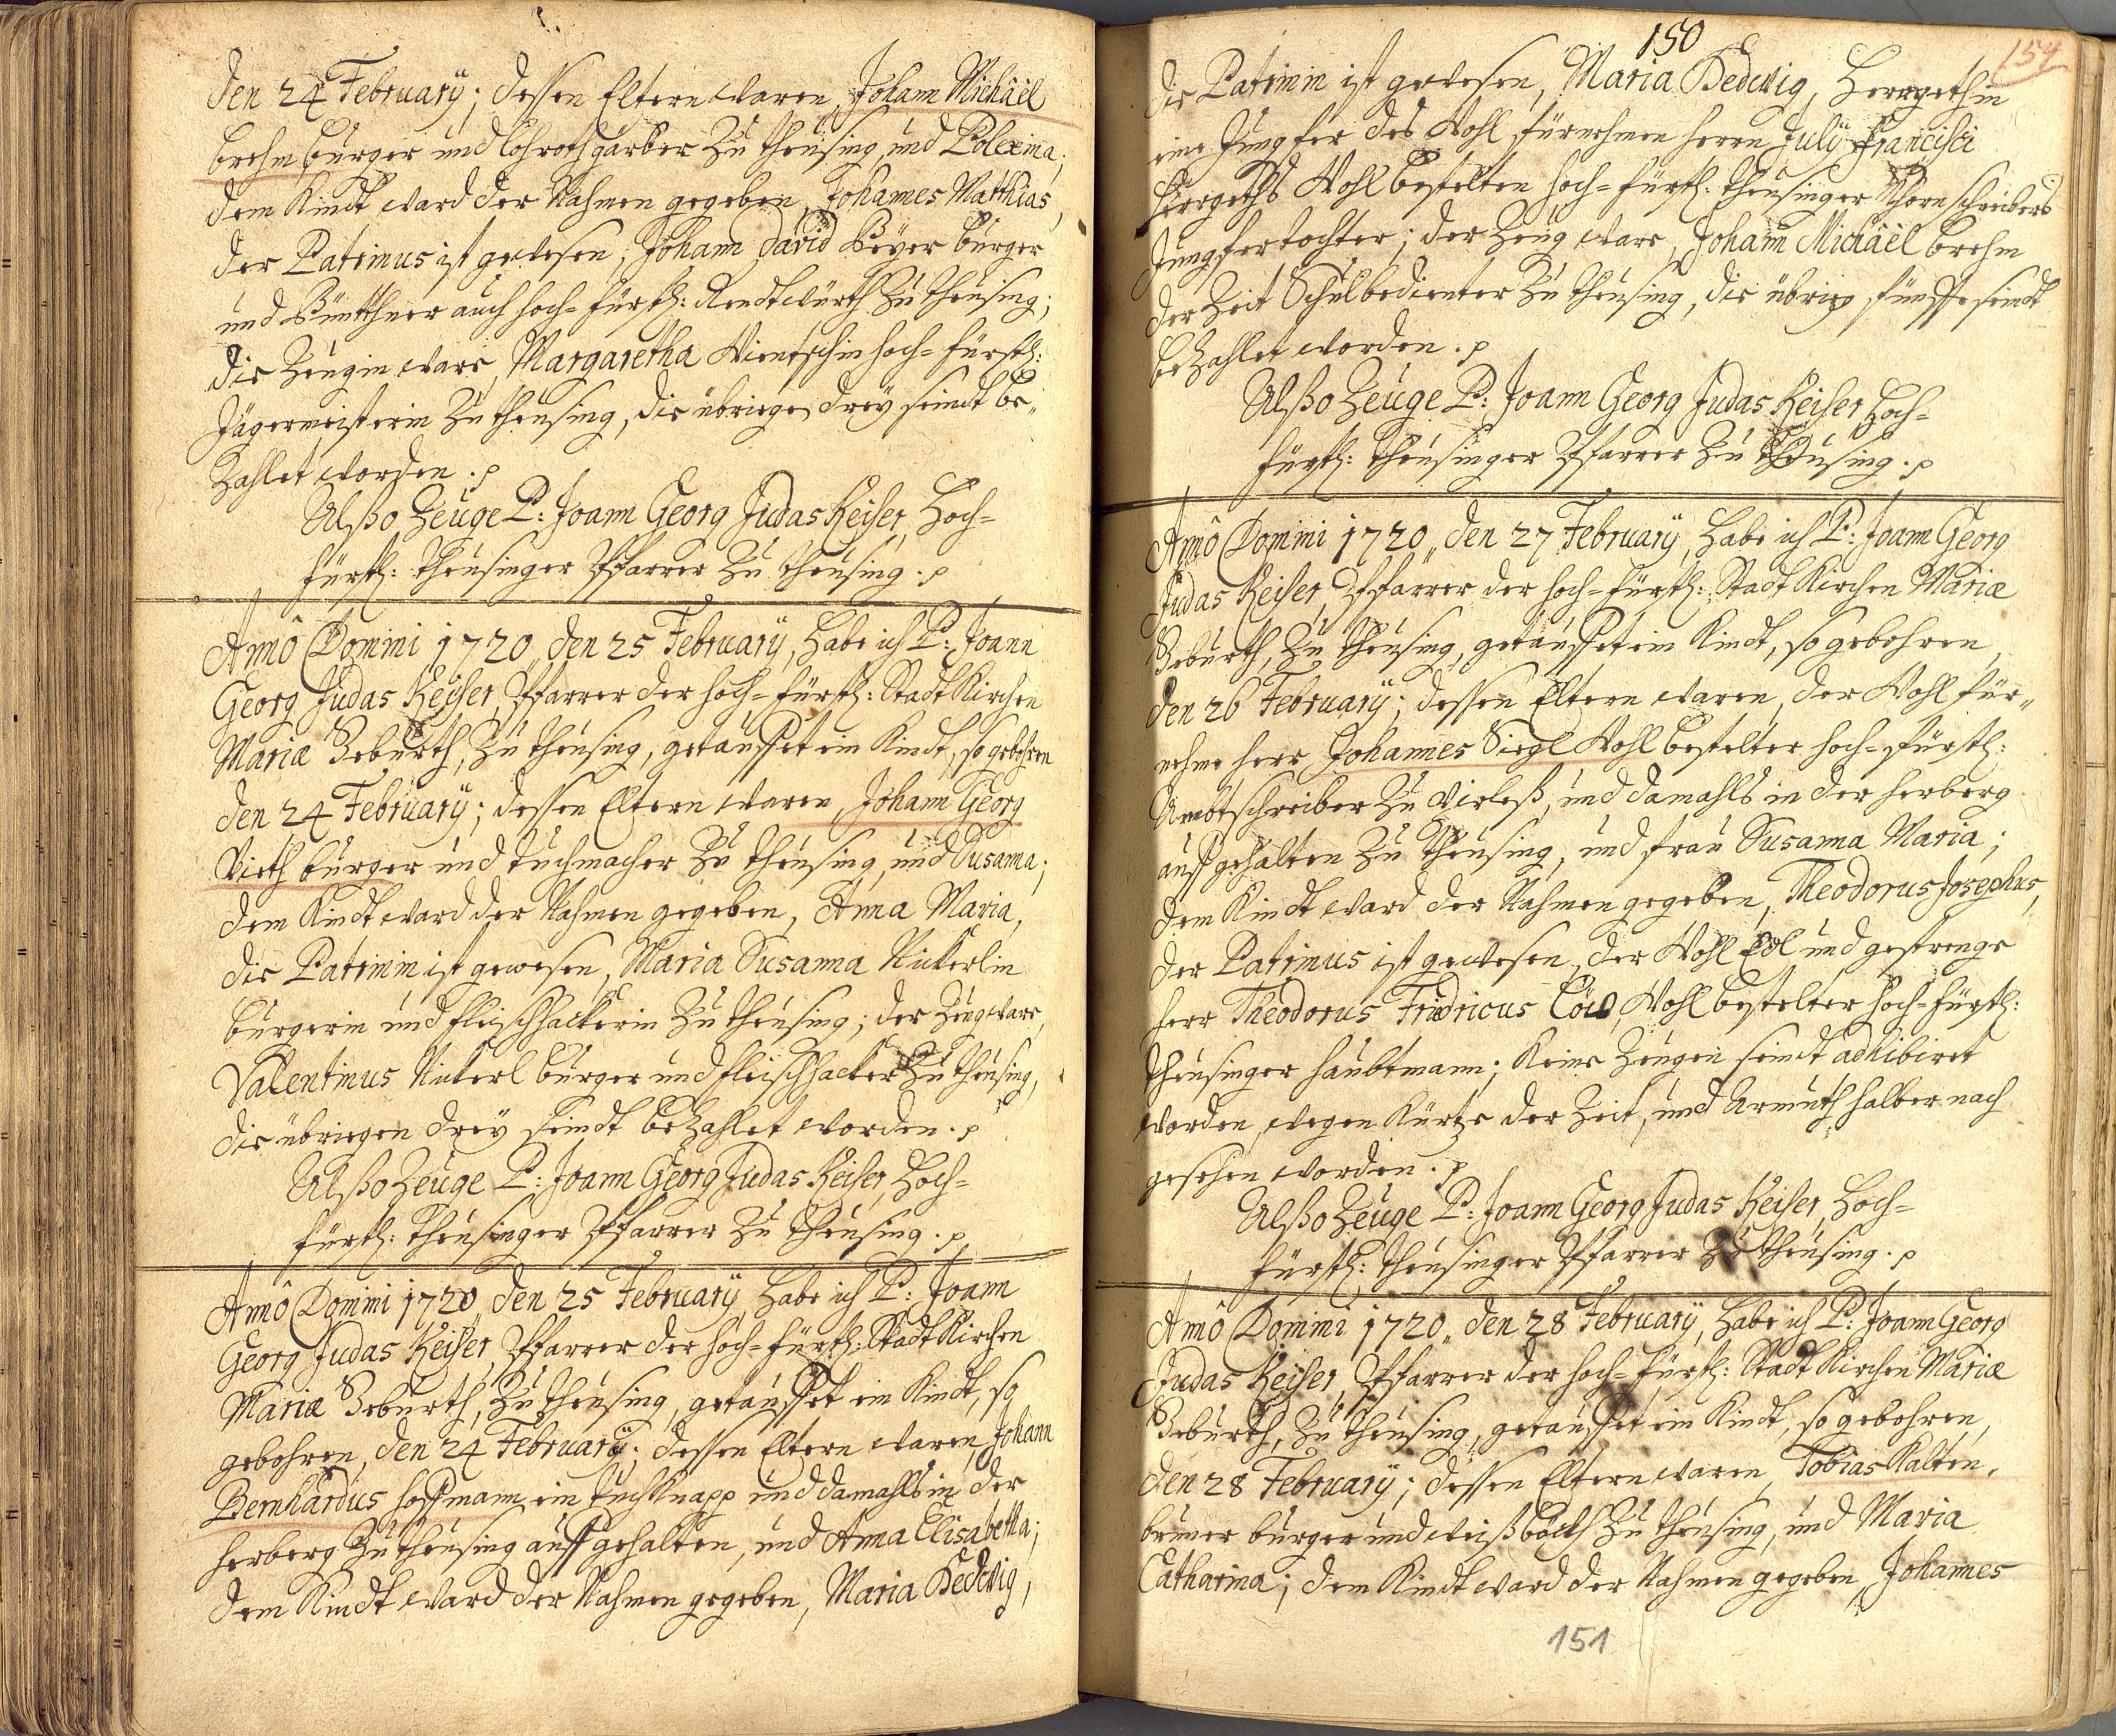 den 24 February; dessen Eltern waren, Johann Michäel
brehm burger und Lohrothgärber Zu theusing, und Polexina;
dem Kindt ward der Nahmen gegeben, Johannes Matthias,
der Patrinus ist gewesen, Johann david Beyer burger
und Bütthner auch hoch-fürstl: Rendtwürth Zu theusing;
die Zeugin ware, Margaretha Wientschin hoch-fürstl:
Jägermeisterin Zu theusing, die übriege drey seindt be„
Zahlet worden. p
Alßo Zeuge P: Joann Georg Judas Keiser, Hoch-
fürstl: theusinger Pfarrer Zu theusing. p
Annô Domini 1720„ den 25 February, habe ich P: Joann
Georg Judas Keiser, Pfarrer der hoch-fürstl: Stadt Kirchen
Mariæ Geburth, Zu theusing, getauffet ein Kindt, so gebohren
den 24 February; dessen Eltern waren, Johann Georg
Vieth burger und tuchmacher Zu theusing, und Susanna;
dem Kindt ward der Nahmen gegeben, Anna Maria,
die Patrinin ist gewesen, Maria Susanna Nickerlin
burgerin und fleischhackerin Zu theusing; der Zeug ware,
Valentinus Nickerl burger und fleischhacker Zu theusing,
die übriegen drey seindt beZahlet worden. p
Alßo Zeuge P: Joann Georg Judas Keiser, Hoch-
fürstl: theusinger Pfarrer Zu theusing. p
Annô Domini 1720„ den 25 February, habe ich P: Joann
Georg Judas Keiser, Pfarrer der hoch-fürstl: Stadt Kirchen
Mariæ Geburth, Zu theusing, getauffet ein Kindt, so
gebohren, den 24 February; dessen Eltern waren, Johann
Bernhardus hoffmann ein tuchknapp und damahls in der
herberg Zu theusing auffgehalten, und Anna Elisabetha;
dem Kindt ward der Nahmen gegeben, Maria Hedwig,
150
154
die Patrinin ist gewesen, Maria Hedwig, Herrgethin
eine Jungfer des Wohl fürnehmen herrn July Francisci
Herrgeths Wohl bestelten hoch-fürstl: theusinger schreibers
Jungfertochter; der Zeug ware, Johann Michäel brehm
der Zeit Schulbedienter Zu theusing, die übrige fünffe seindt
beZahlet worden. p
Alßo Zeuge P: Joann Georg Judas Keiser, Hoch-
fürstl: theusinger Pfarrer Zu theusing. p
Annô Domini 1720„ den 27 February, habe ich P: Joann Georg
Judas Keiser, Pfarrer der hoch-fürstl: Stadt Kirchen Mariæ
Geburth, Zu theusing, getauffet ein Kindt, so gebohren,
den 26 February; dessen Eltern waren, der Wohl für„
nehme herr Johannes Siegl Wohl bestelter hoch-fürstl:
Ambtschreiber Zu Udriß, und damahls in der herberg
auffgehalten Zu theusing, und frau Susanna Maria;
dem Kindt ward der Nahmen gegeben, Theodorus Josephus,
der Patrinus ist gewesen, der Wohl Edl und gestrenge
herr Theodorus Fridricus Löw, Wohl bestelter hoch-fürstl:
theusinger haubtmann; Keine Zeugen seindt adhibiret
worden, wegen Kürtze der Zeit, und Armuth halber nach
gesehen worden. p
Alßo Zeuge P: Joann Georg Judas Keiser, Hoch-
fürstl: theusinger Pfarrer Zu theusing. p
Annô Domini 1720„ den 28 February, habe ich P: Joann Georg
Judas Keiser, Pfarrer der hoch-fürstl: Stadt Kirchen Mariæ
Geburth, Zu theusing, getauffet ein Kindt, so gebohren,
den 28 February; dessen Eltern waren, Tobias Kalten„
bruner burger und weißböckh Zu theusing, und Maria
Catharina; dem Kindt ward der Nahmen gegeben, Johannes
151